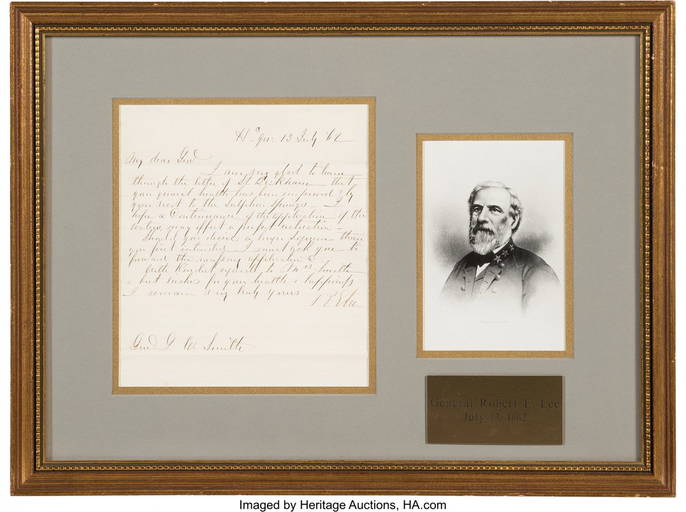 Hd Qrs 13 July 62
My dear Genl
I am very glad to learn
through the letter of Lt Beckham that
your general health has been improved by
your visit to the Sulphur Springs - I
hope a continuance of the application of the
waters may effect a perfect restoration -
Should you desire a longer
you first intended I must ask you to
forward the necessary application
With kindest regards to Mrs Smith
& best wishes for your health & happiness
I remain very truly yours
R E Lee
Genl G W Smith
General Robert E. Lee
July 13, 1862
Imaged by Heritage Auctions, HA.com